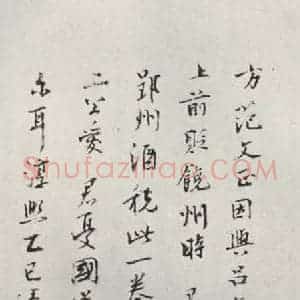 方范文正因與呂
上前貶饒州時
郢州酒稅此一卷
二公愛君憂國
東耳淳熙乙巳
Shufaziliao.COM